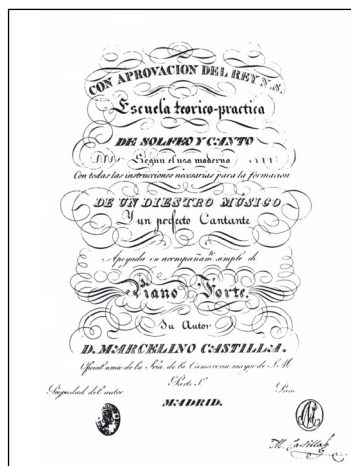 CON APROVACION DEL REY N.S.
Escuela teorico-practica
DE SOLFEO Y CANTO
Segun el uso moderno
Con todas las instrucciones necesarias para la formacion
DE UN DIESTRO MÚSICO
Y un perfecto Cantante
Apoyada en acompañam.to simple de
Piano Forte.
Su Autor
D. MARCELINO CASTILLA.
Oficial de la Sria. de la Camarera mayor de S.M.
Parte 1ª
Propiedad del autor
MADRID.
M. Castilla